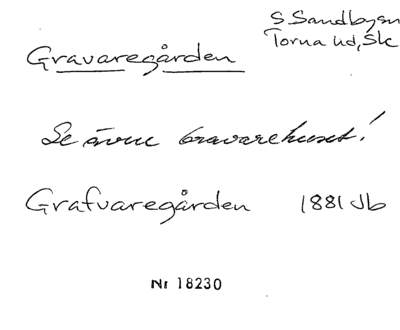 S. Sandbyen
Torna hd, Sk
Gravaregården
Se även Gravarehuset!
Grafvaregården 1881 Jb
Nr 18230